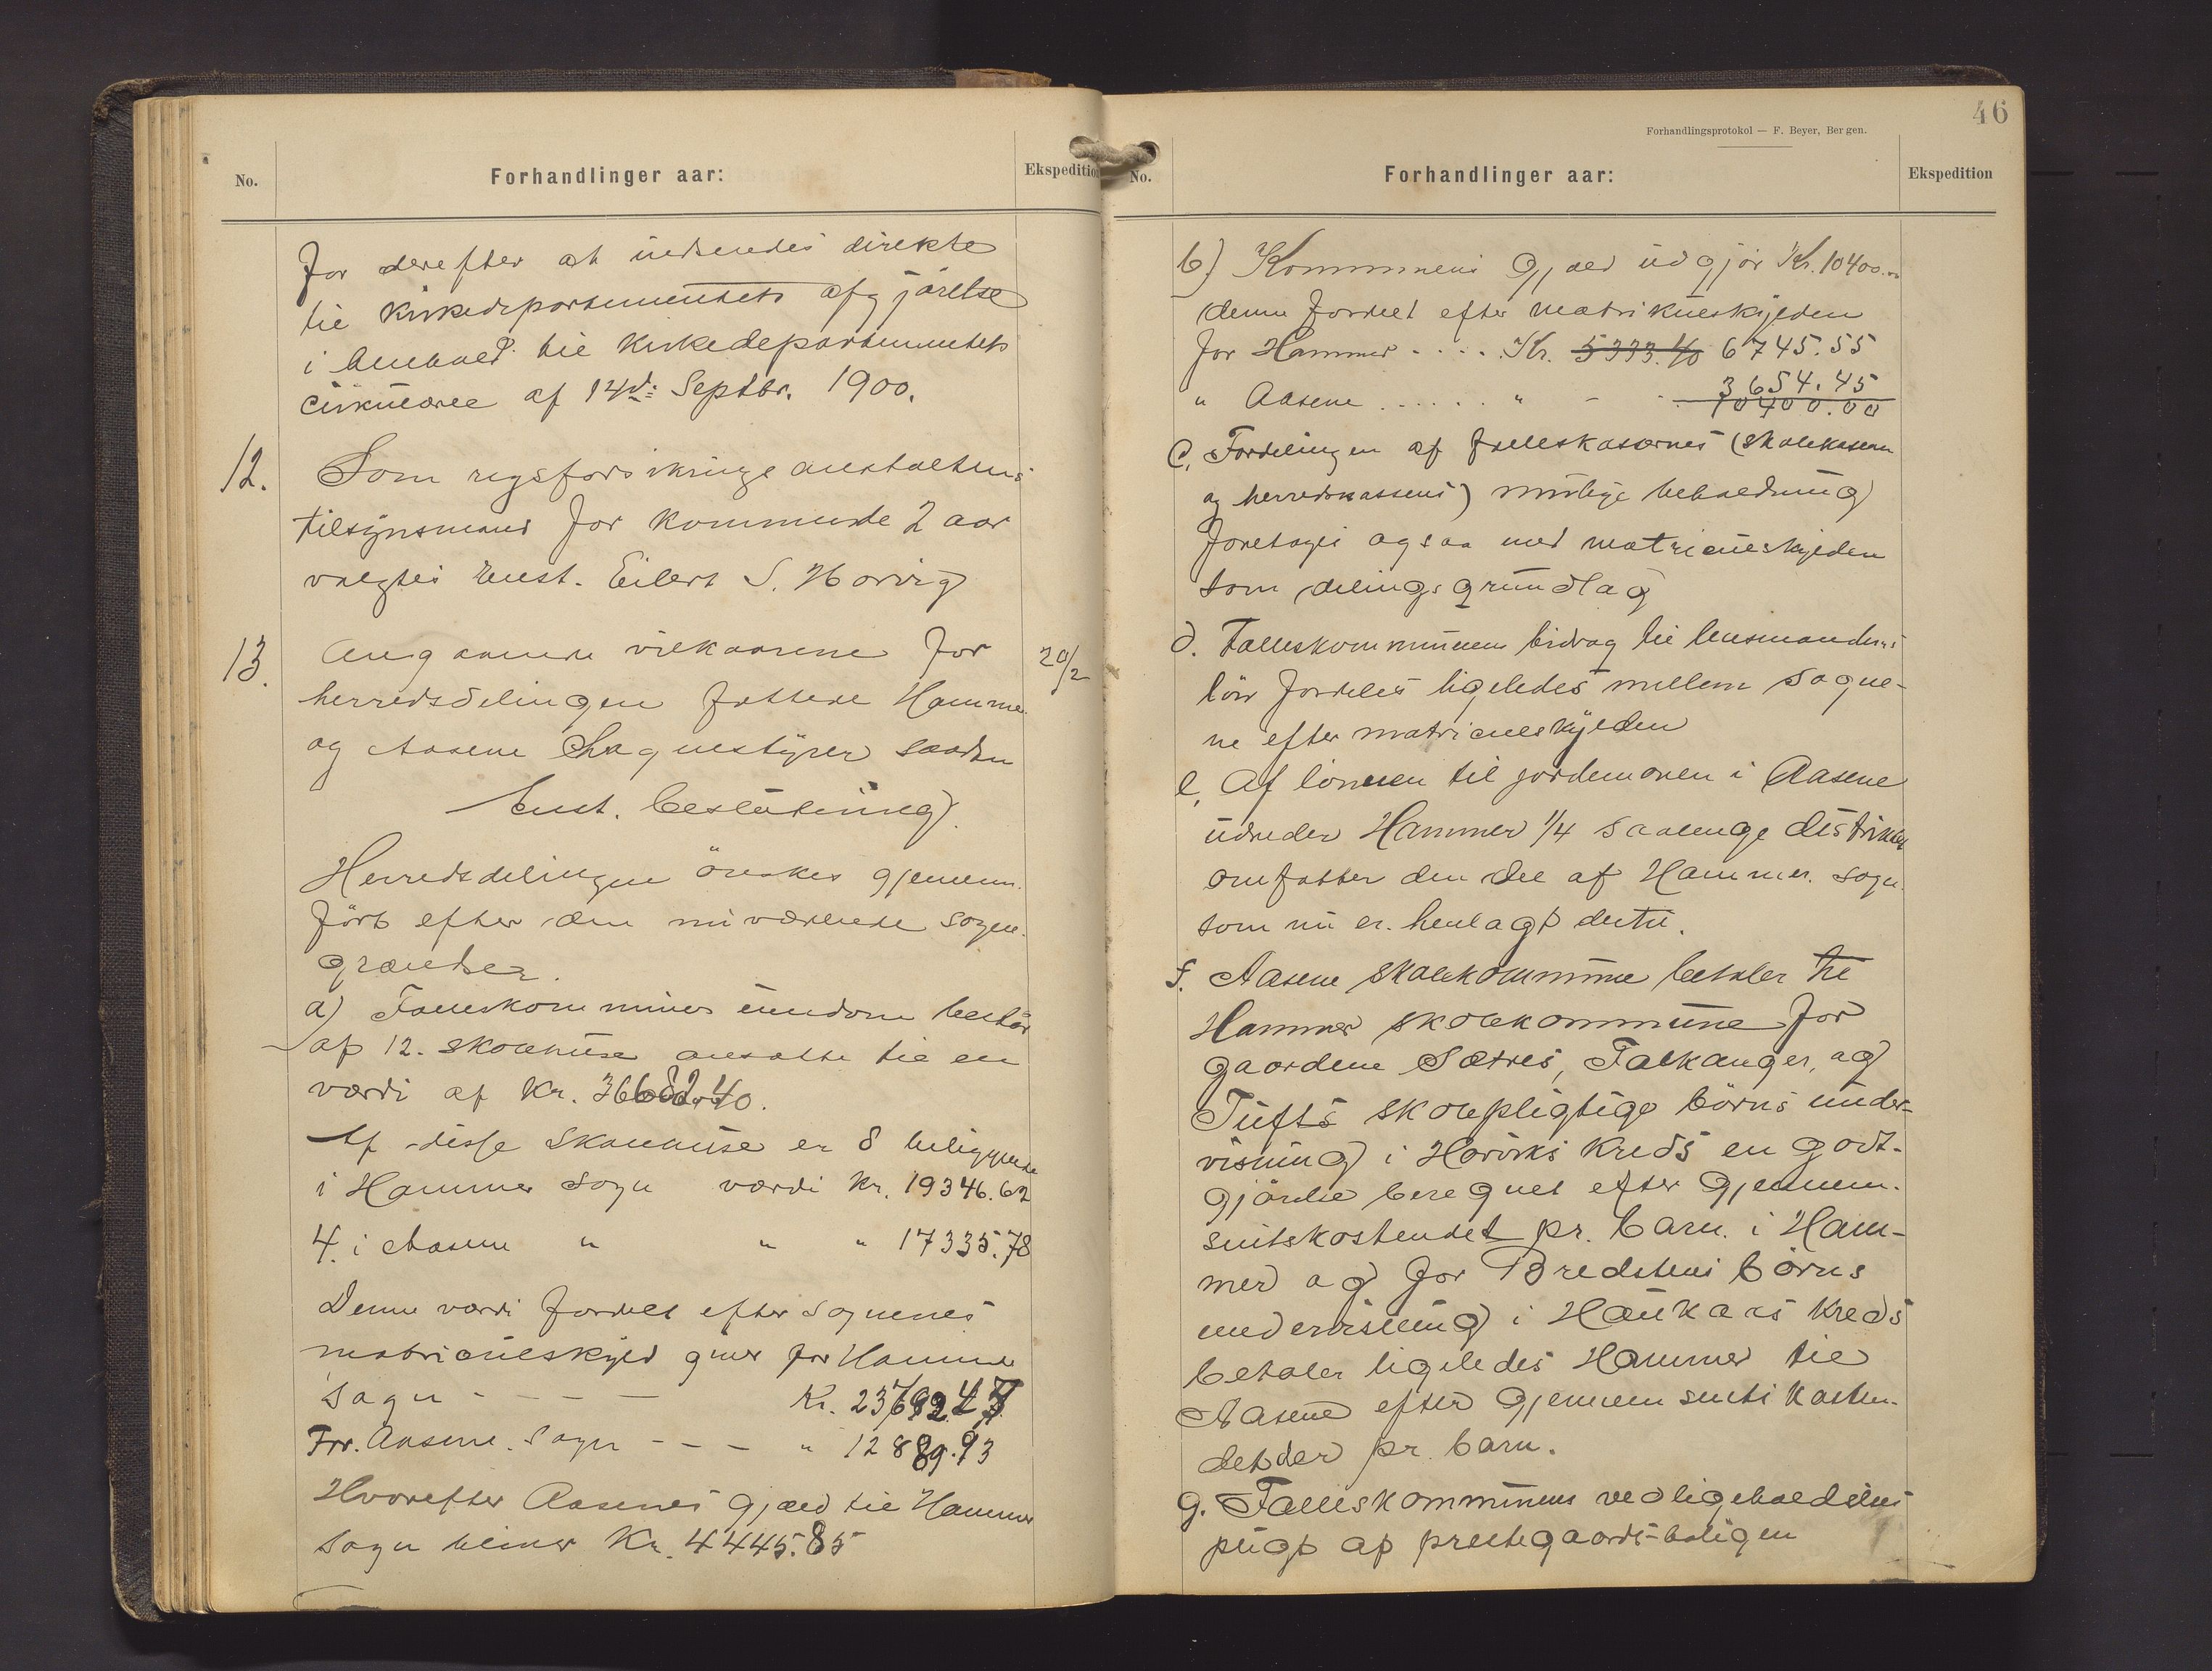 No.
Forhandlinger aar:
Ekspedition
for derefter at indsendes direkte
til kirkedepartementets afgjörelse
i henhold til kirkedepartementets
cirkulære af 14de Septbr. 1900.
12. Som rigsforsikringsanstaltens
tilsynsmand for kommende 2 aar
valgtes enst. Eilert S. Horvig
13. Angaaende vilkaarene for 20/2
herredsdelingen fattede Hammer
og Aasene Sognestyrer saadan
Enst. beslutning.
Herredsdelingen önskes gjennem-
fört efter den nuværende sogne-
grændser.
a) Fælleskommunes eiendom består
af 12. skolehuse ansatte til en
værdi af Kr. 36682.40.
Af disse Skolehuse er 8 beliggende
i Hammer Sogn værdi Kr. 19346.62
4. i Aasene " " " 17335.78
Denne værdi fordelt efter Sognenes
matriculskyld giver for Hammer
Sogn - - - - Kr. 23792.47
For Aasene Sogn - - - " 12889.93
Hvorefter Aasenes gjæld til Hammer
Sogn bliver Kr. 4445.85
46
Forhandlingsprotokol — F. Beyer, Bergen.
No.
Forhandlinger aar:
Ekspedition
b) Kommunens Gjæld udgjör Kr. 10400.00
denne fordelt efter matrikulskylden
for Hammer . . . . Kr. 5333.40 6745.55
" Aasene . . . . . . " - 3654.45
10400.00
C. Fordelingen af fælleskassernes (skolekassen
og herredskassens) mulige beholdning
foretages ogsaa med matriculskylden
som delingsgrundlag
d. Fælleskommunens bidrag til lensmandens
lön fordeles ligeledes mellem sogne-
ne efter matriculskylden
e, Af lönnen til jordemoren i Aasene
udreder Hammer 1/4 saalenge distriktet
omfatter den del af Hammer sogn
som nu er henlagt dertil.
f. Aasene skolekommune betaler til
Hammer skolekommune for
gaardene Sætres, Falkanger, og
Tufts skolepligtige börns under-
visning i Horviks Kreds en godt-
gjörelse beregnet efter gjennem-
snitskostendet pr. barn i Ham-
mer og for Bredstens börns
undervisning i Haukaas Kreds
betaler ligeledes Hammer til
Aasene efter gjennemsnits kosten-
det der pr. barn.
g. Fælleskommunens vedligeholdelses
pligt af prestegaards-boligen